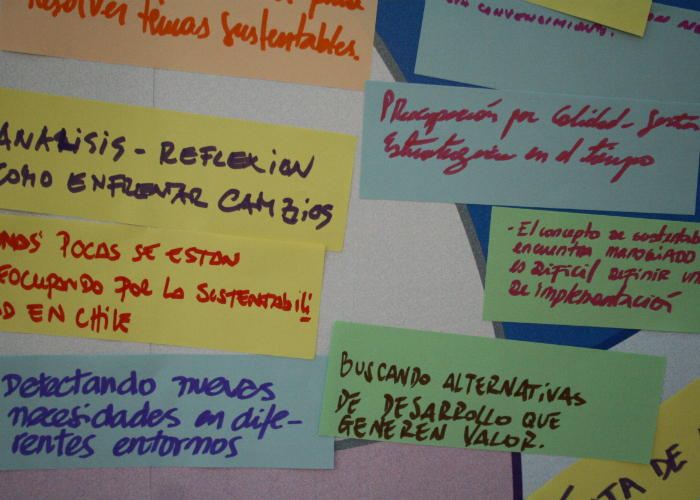 resolver temas sustentables.
CONVENCIMIENTO.
ANALISIS - REFLEXION
COMO ENFRENTAR CAMBIOS
Preocupación por Calidad - Susten
Estratégica en el tiempo
UNAS POCAS SE ESTAN
EOCUPANDO POR LA SUSTENTABILI
D EN CHILE
- El concepto de sustentab
encuentra manoseado
es difícil definir un
de implementación
Detectando nuevas
necesidades en dife-
rentes entornos
BUSCANDO ALTERNATIVAS
DE DESARROLLO QUE
GENEREN VALOR.
TA DE